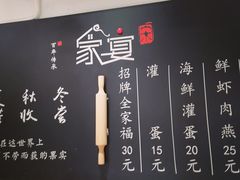 百年传承
家宴
冬尝
秋收
在这世界上
不劳而获的果实
招牌全家福30元
灌蛋15元
海鲜灌蛋20元
鲜虾肉燕25元